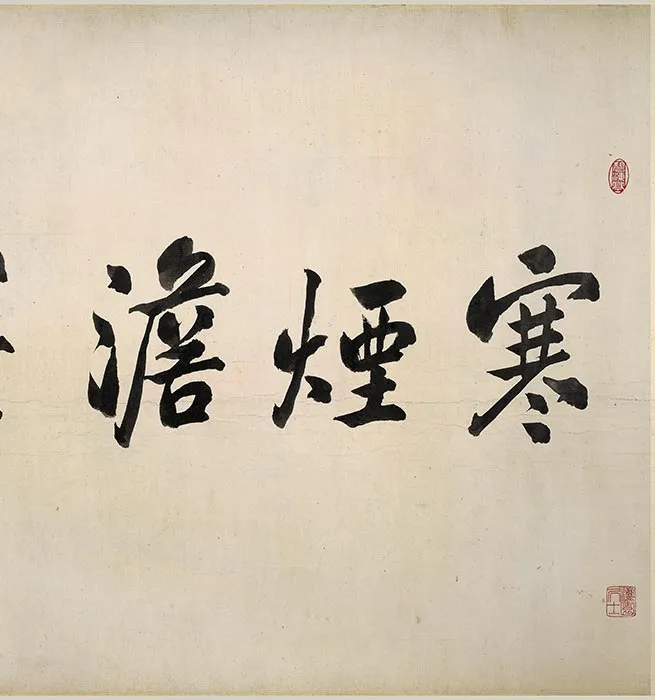 寒煙澹